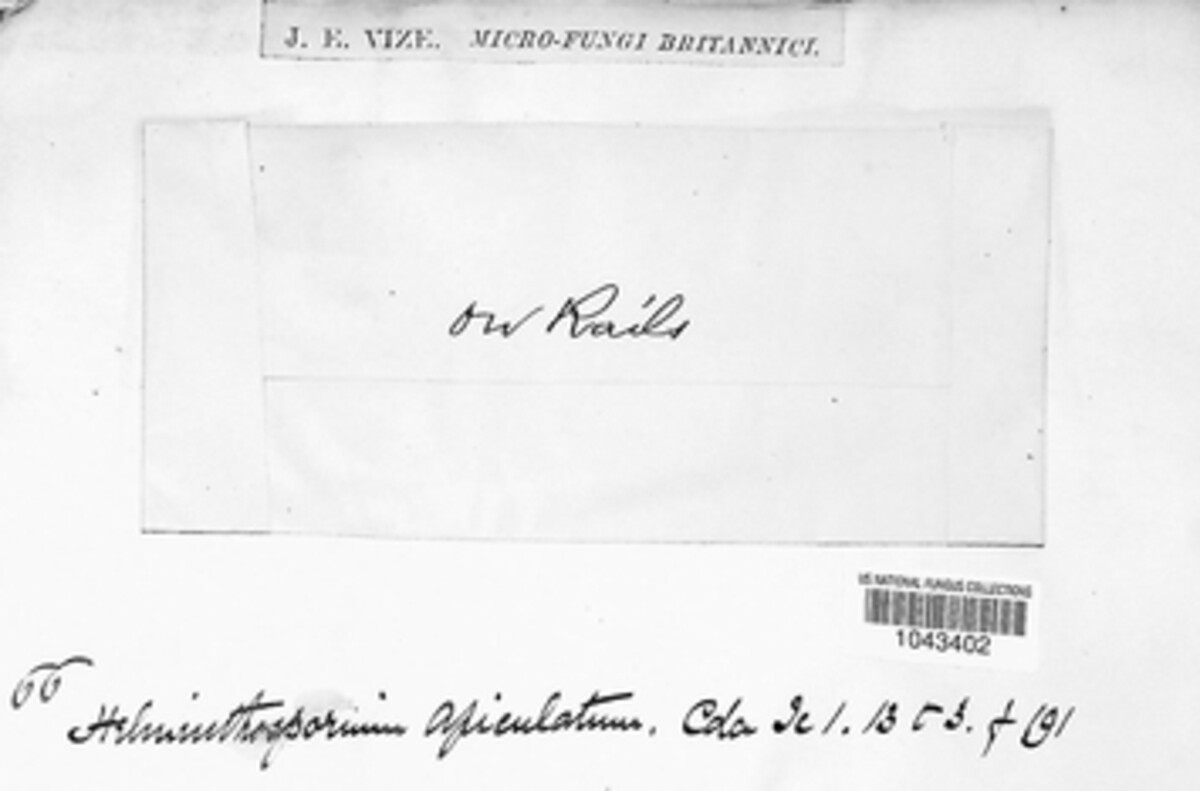 J. E. VIZE. MICRO-FUNGI BRITANNICI.
on Rails
US NATIONAL FUNGUS COLLECTIONS
1043402
66
Helminthosporium apiculatum. Cda Ic 1. 13 t 3. f 191